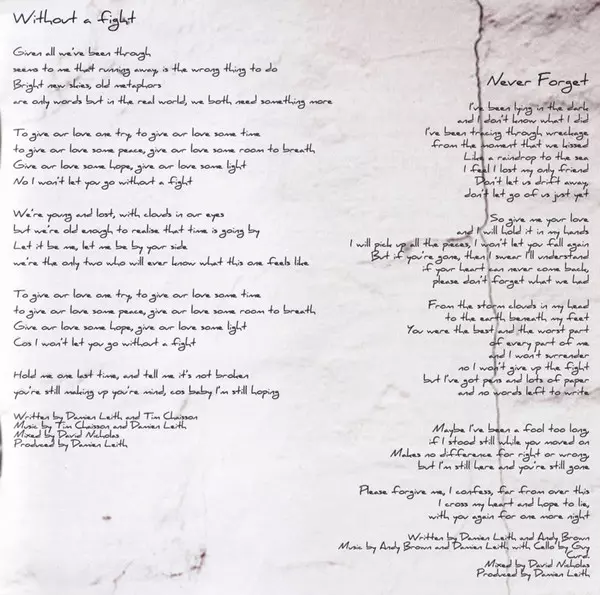 Without a fight
Given all we've been through
seems to me that running away, is the wrong thing to do
Bright new skies, old metaphors
are only words but in the real world, we both need something more
To give our love one try, to give our love some time
to give our love some peace, give our love some room to breath
Give our love some hope, give our love some light
No I won't let you go without a fight
We're young and lost, with clouds in our eyes
but we're old enough to realise that time is going by
Let it be me, let me be by your side
we're the only two who will ever know what this one feels like
To give our love one try, to give our love some time
to give our love some peace, give our love some room to breath
Give our love some hope, give our love some light
Cos I won't let you go without a fight
Hold me one last time, and tell me it's not broken
you're still making up you're mind, cos baby I'm still hoping
Written by Damien Leith and Tim Chaisson
Music by Tim Chaisson and Damien Leith
Mixed by David Nicholas
Produced by Damien Leith
Never Forget
I've been lying in the dark
and I don't know what I did
I've been tracing through wreckage
from the moment that we kissed
Like a raindrop to the sea
I feel I lost my only friend
Don't let us drift away,
don't let go of us just yet
So give me your love
and I will hold it in my hands
I will pick up all the pieces, I won't let you fall again
But if you're gone, then I swear I'll understand
if your heart can never come back,
please don't forget what we had
From the storm clouds in my head
to the earth beneath my feet
You were the best and the worst part
of every part of me
and I won't surrender
no I won't give up the fight
but I've got pens and lots of paper
and no words left to write
Maybe I've been a fool too long,
if I stood still while you moved on
Makes no difference for right or wrong,
but I'm still here and you're still gone
Please forgive me, I confess, far from over this
I cross my heart and hope to lie,
with you again for one more night
Written by Damien Leith and Andy Brown
Music by Andy Brown and Damien Leith with Cello by Guy
Curd.
Mixed by David Nicholas
Produced by Damien Leith